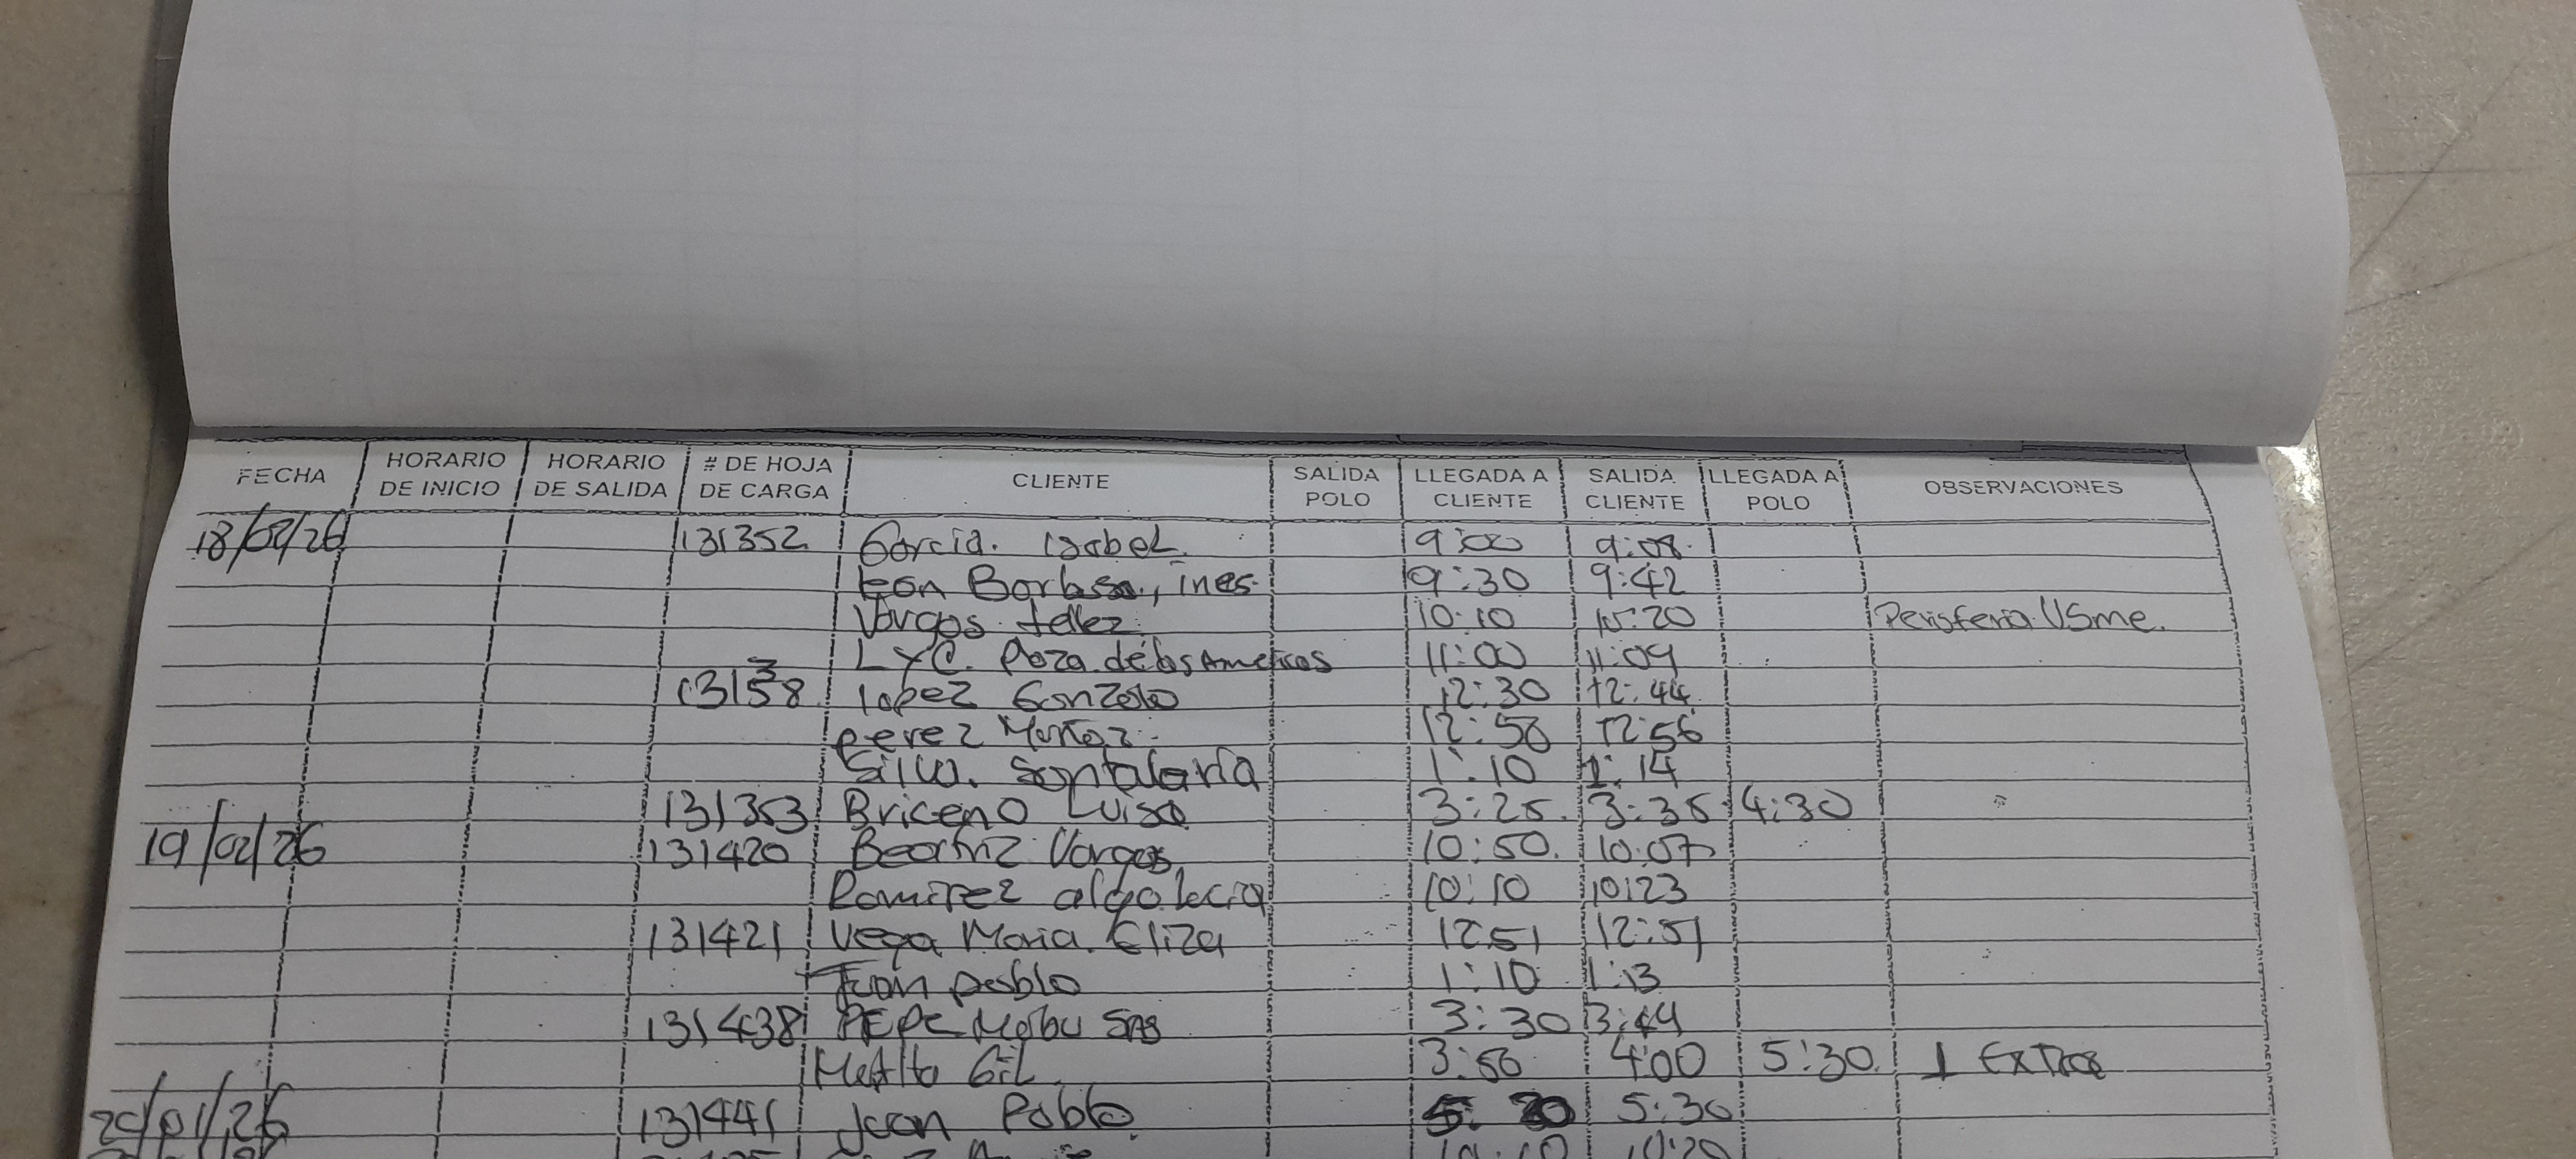 FECHA HORARIO DE INICIO HORARIO DE SALIDA # DE HOJA DE CARGA CLIENTE SALIDA POLO LLEGADA A CLIENTE SALIDA CLIENTE LLEGADA A POLO OBSERVACIONES
18/02/26 131352 Garcia. Isabel. 9:00 9:08
Leon Barbosa, ines. 9:30 9:42
Vargas tellez. 10:10 10:20 Perisferia USme.
LYC. Plaza de las Americas 11:00 11:09
Lopez Gonzalo 12:30 12:44
perez Muñoz 12:56
Silva. Santalaria 1:10 1:14
131353 Briceño Luisa 3:25 3:35 4:30
19/02/26 131420 Beatriz Vargas 10:50 10:07
Ramirez 10:10 10:23
131421 Vega Maria. Eliza 12:51 12:51
Juan pablo 1:10 1:13
131438 SAS 3:30 3:49
Gil 3:50 4:00 5:30 1 Extras
131441 Juan Pablo 5:30